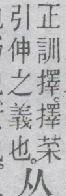 正訓擇。擇菜
引伸之義也。从